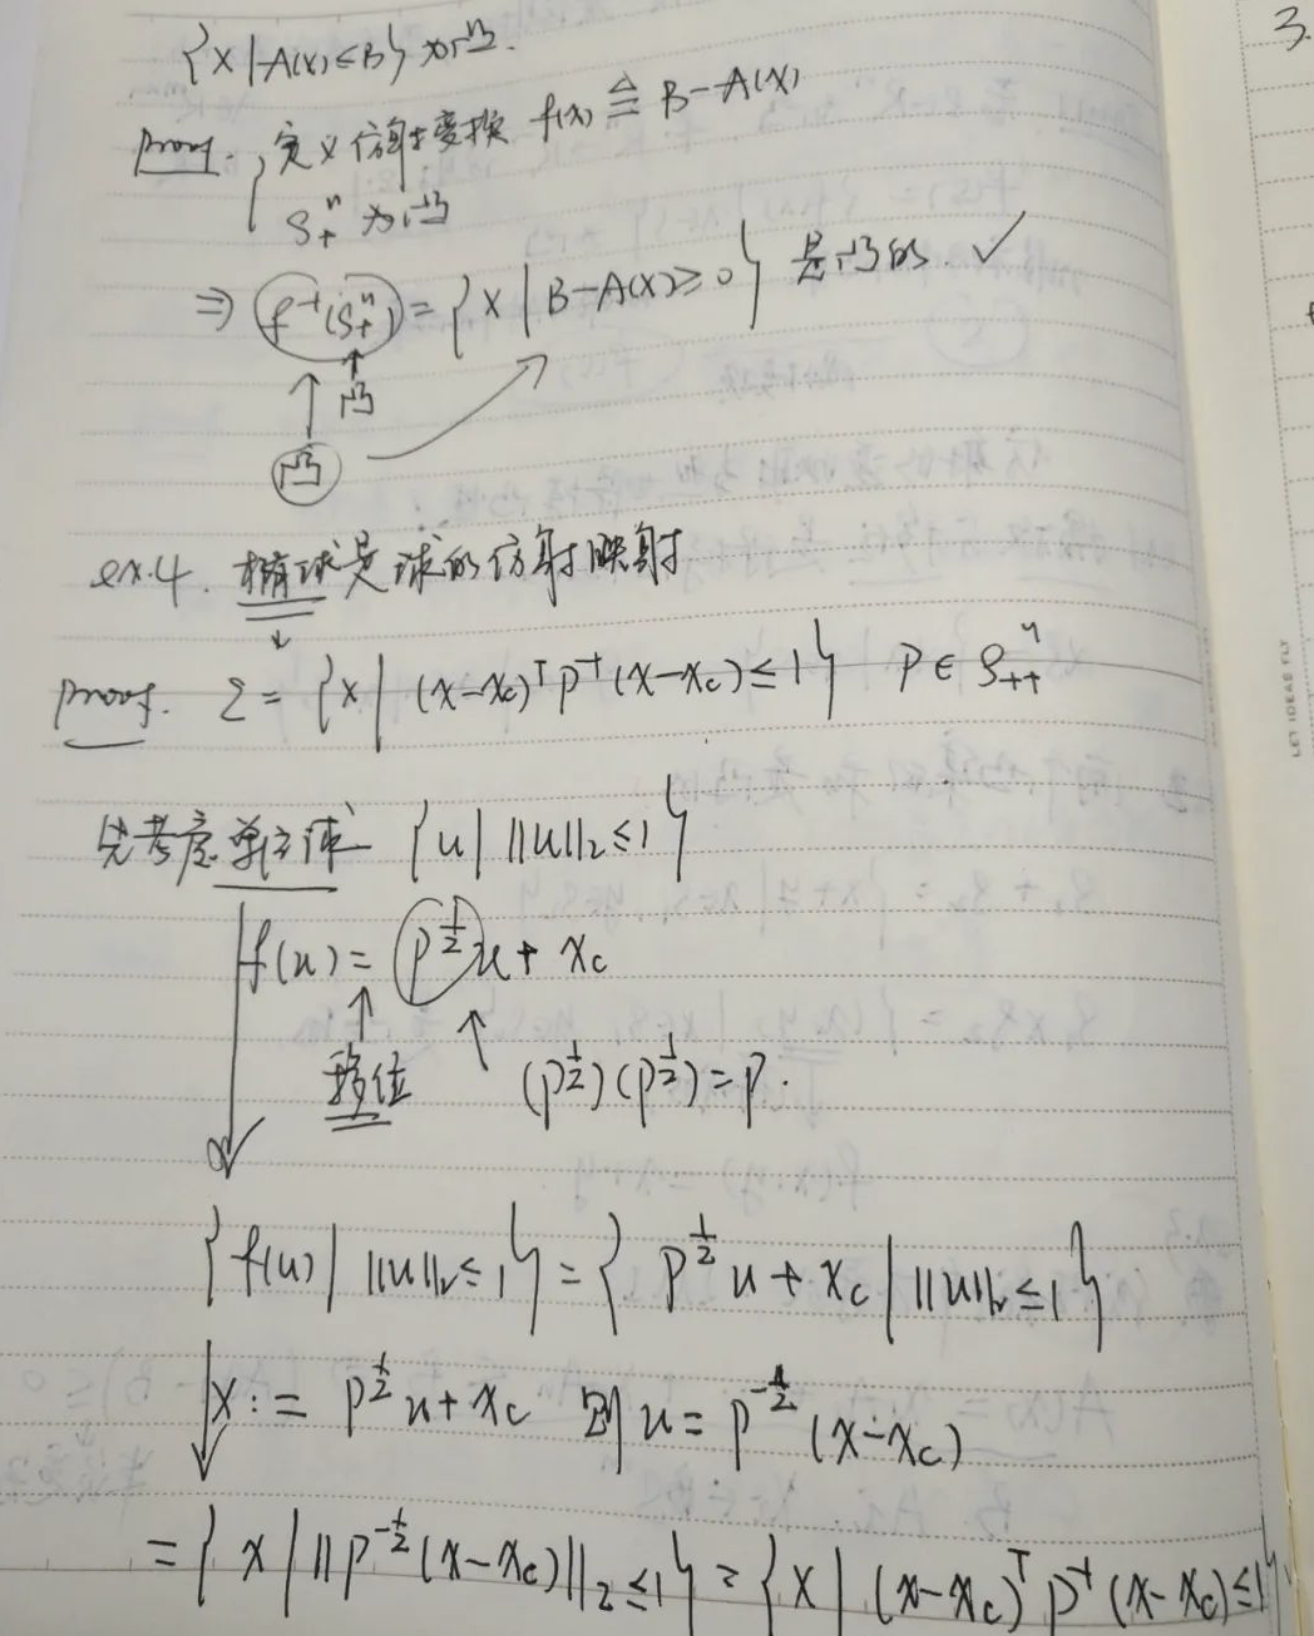 {x | A(x) ≤ B} 为凸.
Proof. { 定义仿射变换 f(x) ≜ B - A(x)
S₊ⁿ 为凸
⇒ f⁻¹(S₊ⁿ) = {x | B - A(x) ≥ 0} 是凸的. ✓
↑ ↑凸
凸
ex.4. 椭球是球的仿射映射
↓
proof. Σ = {x | (x-x_c)ᵀ P⁻¹ (x-x_c) ≤ 1} P ∈ S₊₊ⁿ
先考虑单位球 {u | ||u||₂ ≤ 1}
f(u) = P^{1/2} u + x_c
↑ ↑
移位 (P^{1/2})(P^{1/2}) = P.
{f(u) | ||u||₂ ≤ 1} = {P^{1/2} u + x_c | ||u||₂ ≤ 1}
x := P^{1/2} u + x_c 则 u = P^{-1/2} (x-x_c)
= {x | ||P^{-1/2} (x-x_c)||₂ ≤ 1} = {x | (x-x_c)ᵀ P⁻¹ (x-x_c) ≤ 1}
3.
LET IDEAS FLY